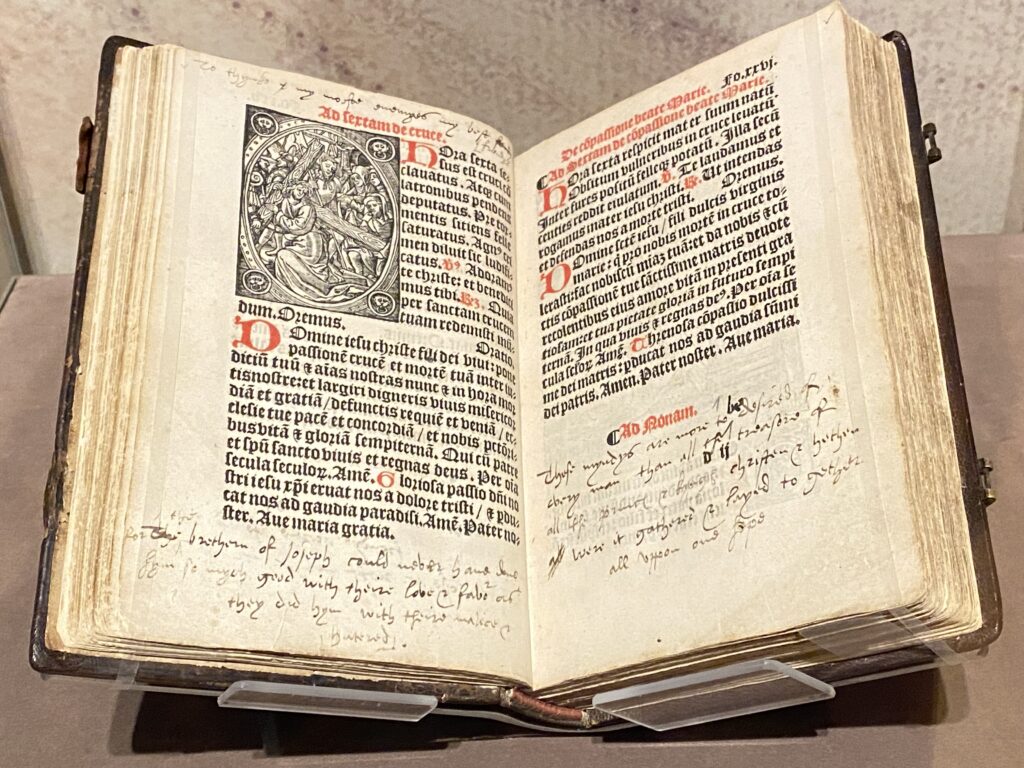 To thynke my moste enemyes my best
Ad sextam de cruce.
HOra sexta ie
sus est cruci cō
clauatus. Atq̃ cum
latronibus pendens
deputatus. Pre tor
mentis sitiens felle
saturatus. Agnꝰ cri
men diluit sic ludifi
catus. ℣. Adoramꝰ
te christe: et benedici
mus tibi. ℟. Quia
per sanctam crucem
tuam redemisti mū
dum. Oremus. Oratio.
DOmine iesu christe fili dei viui: pone
passionē crucē et mortē tuā inter iu
diciū tuū & aīas nostras nunc & in hora mor
tis nostre: et largiri digneris viuis misericor
diā et gratiā / defunctis requiē et veniā / ec-
clesie tue pacē et concordiā / et nobis pctōri-
bus vitā & gloriā sempiternā. Qui cū patre
et spū sancto viuis et regnas deus. Per oīa
secula seculoꝝ. Amē. Gloriosa passio dn̄i no
stri iesu xp̄i eruat nos a dolore tristi / & pdu-
cat nos ad gaudia paradisi. Amē. Pater no-
ster. Aue maria gratia.
for the brethern of Joseph could never have done
hym so mych good with theire love & favor as
they did hym with theire malice &
hatered.
Fo.xxvj.
De cōpassione beate Marie.
Ad Sextam de cōpassione beate Marie.
HOra sexta respicit mater suum natū
Obsitum vulneribus in cruce leuatū.
Inter fures positū felleqꝫ potatū. Illa secū
centies reddit eiulatum. ℣. Te laudamus et
rogamus mater iesu christi. ℟. Ut intendas
et defendas nos a morte tristi. Oremus.
DOmine scē iesu / fili dulcis virginis
marie: q̄ pro nobis mortē in cruce to-
lerasti: fac nobiscū miaz tuā: et da nobis & cū
ctis cōpassionē tue sanctissime matris deuote
recolentibus eius amore vitā in presenti gra
tiosam: et tua pietate gloriā in futuro sempi
ternā. In qua viuis & regnas deꝰ. Per oīa se
cula seꝝ. Amē. Threnosa cōpassio dulcissi
me dei matris: pducat nos ad gaudia summi
dei patris. Amen. Pater noster. Aue maria.
Ad Nonam.
These myndys are more to be desired of
every man than all the treasure of
all the princes & kynges christen & hethen
were it gathered & layed to gether
all vppon one
d ij